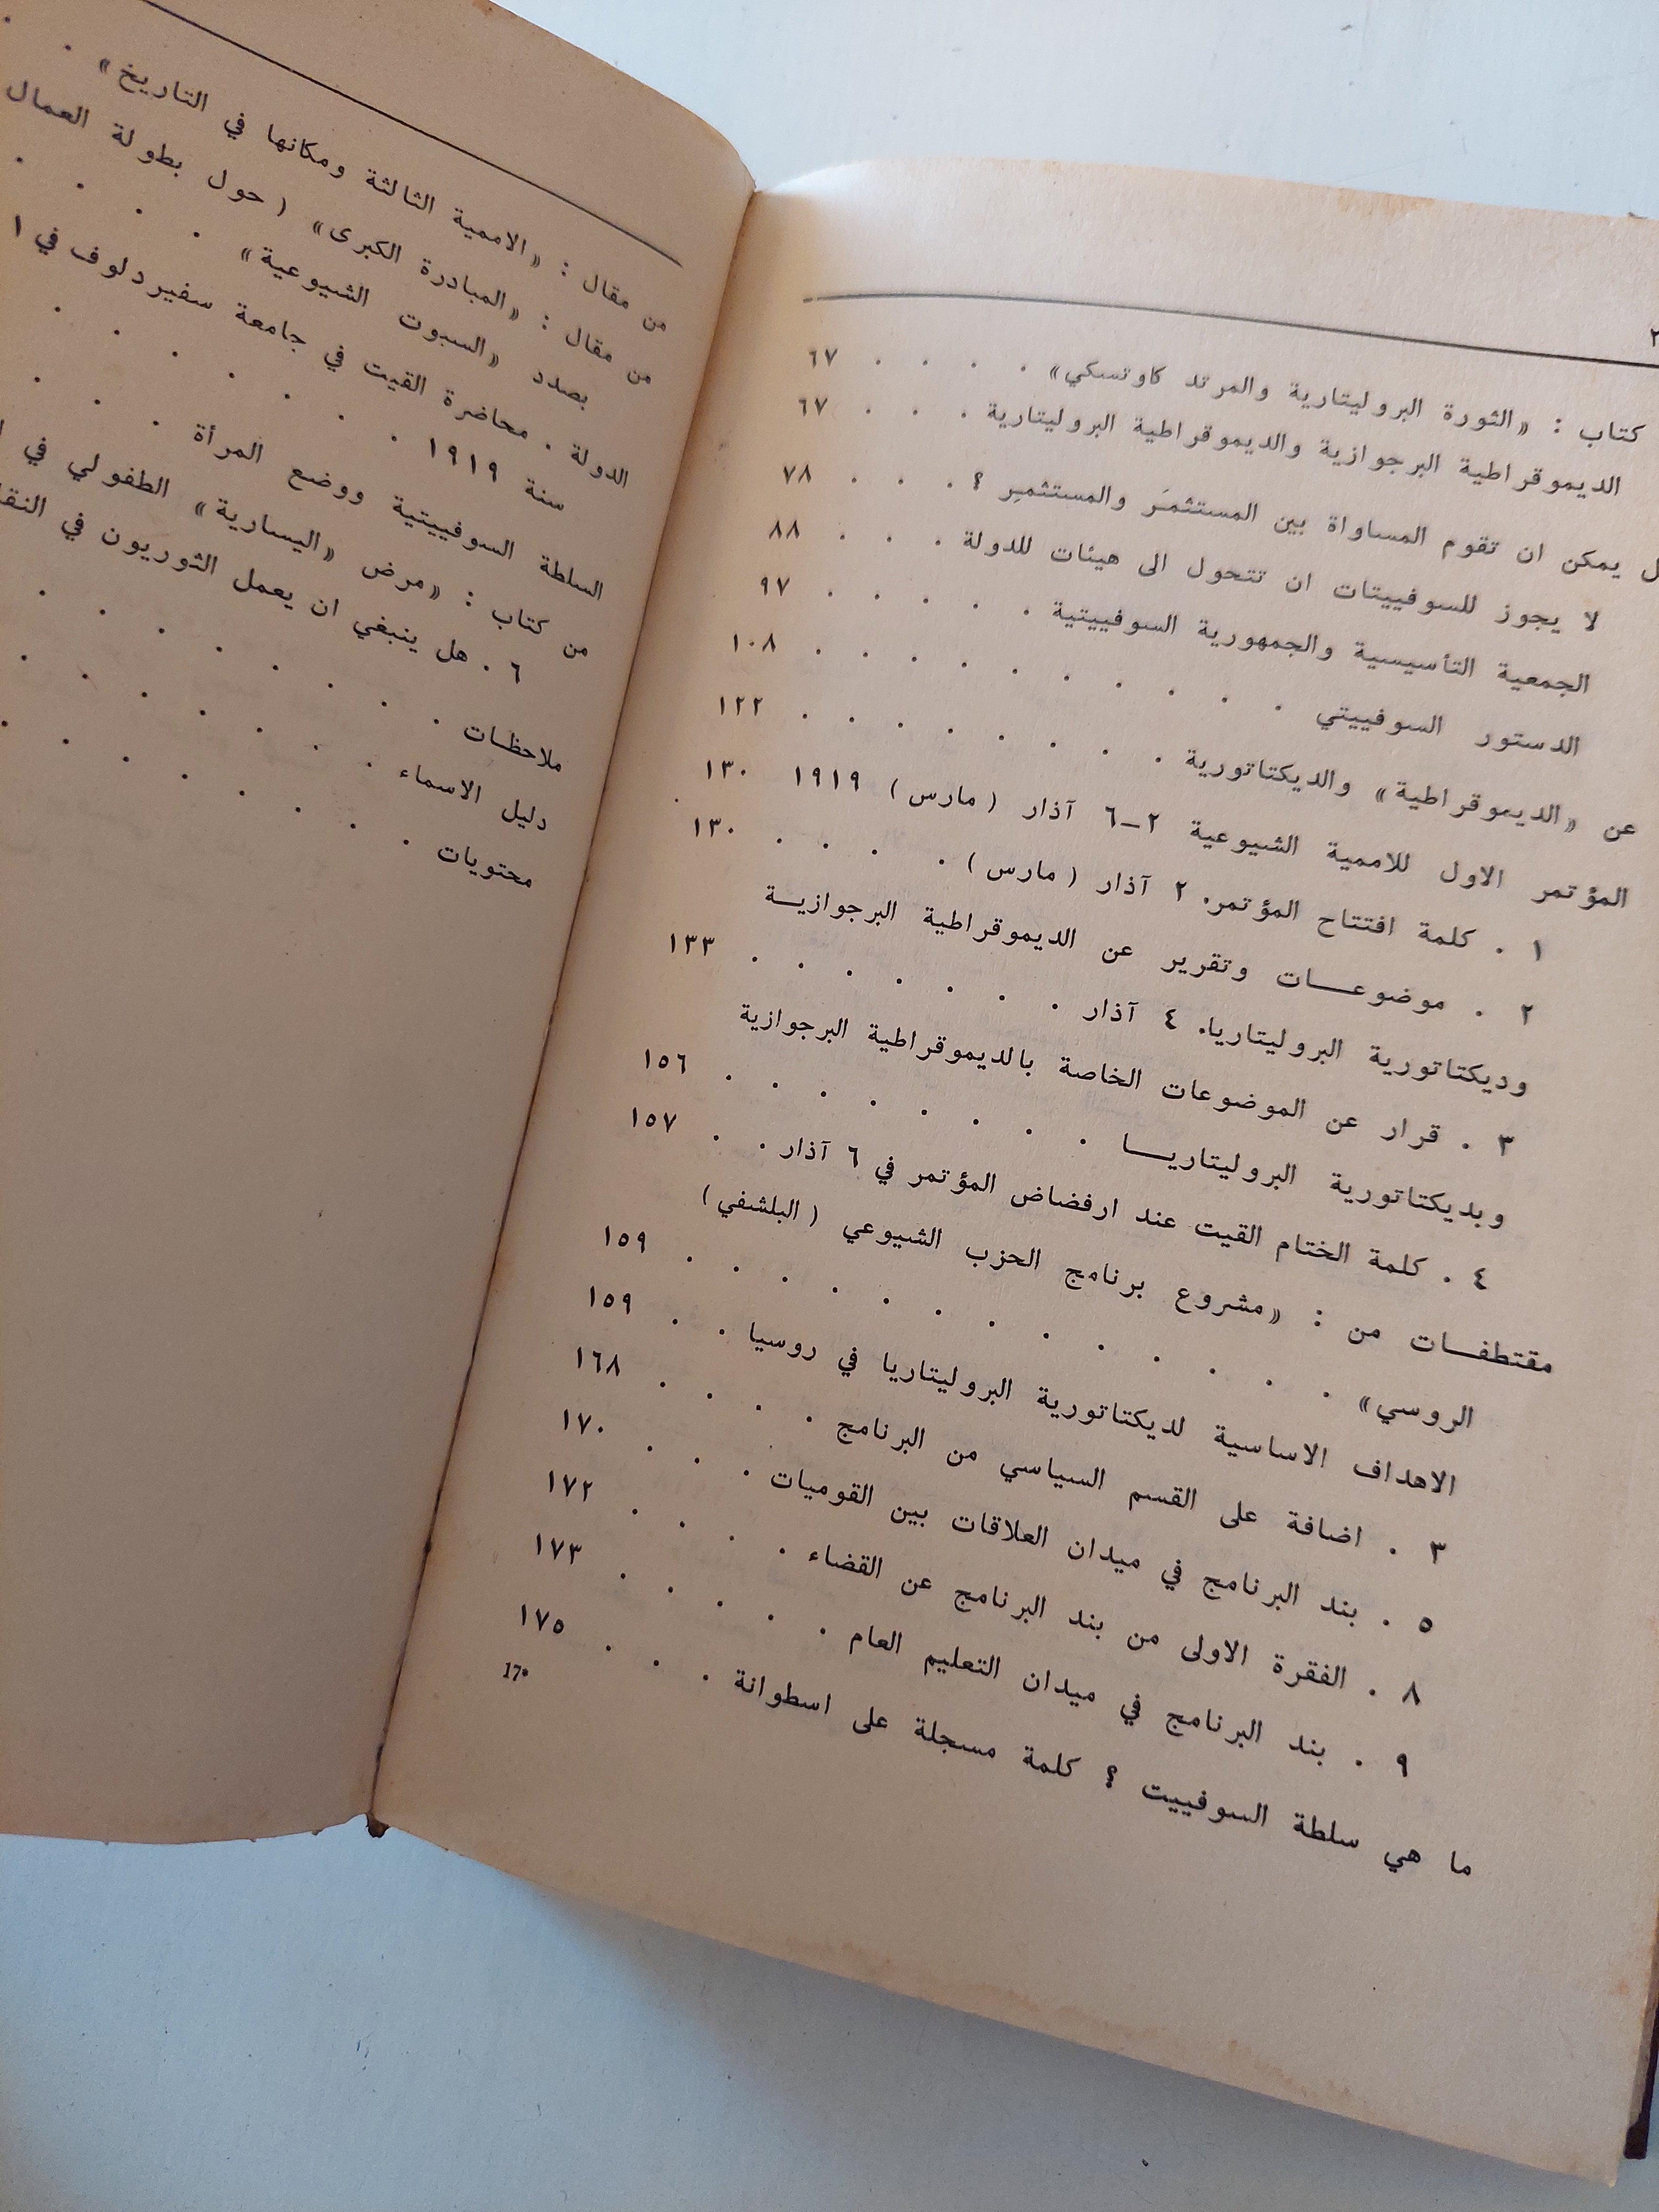 كتاب : «الثورة البروليتارية والمرتد كاوتسكي» . . . . ٦٧
الديموقراطية البرجوازية والديموقراطية البروليتارية . . . ٦٧
يمكن ان تقوم المساواة بين المستثمَر والمستثمِر ؟ . . . ٧٨
لا يجوز للسوفييتات ان تتحول الى هيئات للدولة . . . ٨٨
الجمعية التأسيسية والجمهورية السوفييتية . . . . . ٩٧
الدستور السوفييتي . . . . . . . . . . ١٠٨
عن «الديموقراطية» والديكتاتورية . . . . . . . . ١٢٢
المؤتمر الاول للاممية الشيوعية ٢–٦ آذار (مارس) ١٩١٩ ١٣٠
١ . كلمة افتتاح المؤتمر. ٢ آذار (مارس) . . . . ١٣٠
٢ . موضوعــــات وتقرير عن الديموقراطية البرجوازيــة
وديكتاتورية البروليتاريا. ٤ آذار . . . . . . . ١٣٣
٣ . قرار عن الموضوعات الخاصة بالديموقراطية البرجوازية
وبديكتاتورية البروليتاريــــا . . . . . . . . ١٥٦
٤ . كلمة الختام القيت عند ارفضاض المؤتمر في ٦ آذار . . ١٥٧
مقتطفــات من : «مشروع برنامج الحزب الشيوعي (البلشفي)
الروسي» . . . . . . . . . . . . . ١٥٩
الاهداف الاساسية لديكتاتورية البروليتاريا في روسيا . . ١٥٩
٣ . اضافة على القسم السياسي من البرنامج . . . . ١٦٨
٥ . بند البرنامج في ميدان العلاقات بين القوميات . . . ١٧٠
٨ . الفقرة الاولى من بند البرنامج عن القضاء . . . . ١٧٢
٩ . بند البرنامج في ميدان التعليم العام . . . . . ١٧٣
ما هي سلطة السوفييت ؟ كلمة مسجلة على اسطوانة . . . ١٧٥
17*
من مقال : «الاممية الثالثة ومكانها في التاريخ» .
من مقال : «المبادرة الكبرى» (حول بطولة العمال
بصدد «السبوت الشيوعية» . . . .
الدولة . محاضرة القيت في جامعة سفيردلوف في ١
سنة ١٩١٩ . . . . . . .
السلطة السوفييتية ووضع المرأة . . .
من كتاب : «مرض «اليسارية» الطفولي في
٦ . هل ينبغي ان يعمل الثوريون في
ملاحظــات . . . . . . . .
دليل الاسماء . . . . . . .
محتويات . . . . . . . .